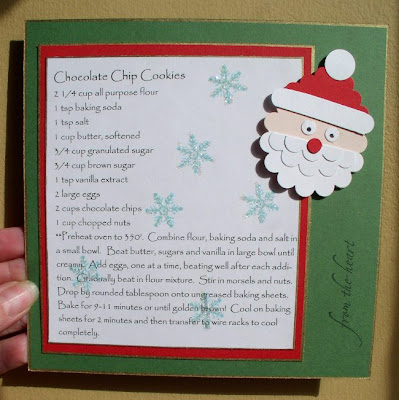 Chocolate Chip Cookies
2 1/4 cup all purpose flour
1 tsp baking soda
1 tsp salt
1 cup butter, softened
3/4 cup granulated sugar
3/4 cup brown sugar
1 tsp vanilla extract
2 large eggs
2 cups chocolate chips
1 cup chopped nuts
**Preheat oven to 350°. Combine flour, baking soda and salt in
a small bowl. Beat butter, sugars and vanilla in large bowl until
creamy. Add eggs, one at a time, beating well after each addi-
tion. Gradually beat in flour mixture. Stir in morsels and nuts.
Drop by rounded tablespoon onto ungreased baking sheets.
Bake for 9-11 minutes or until golden brown! Cool on baking
sheets for 2 minutes and then transfer to wire racks to cool
completely.
from the heart